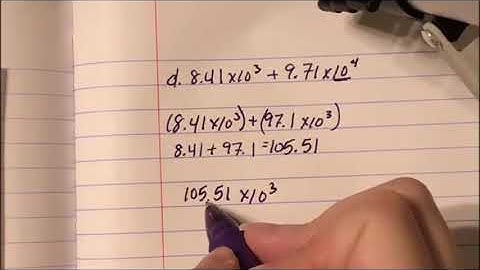 d. 8.41×10³ + 9.71×10⁴
(8.41×10³)+(97.1×10³)
8.41+97.1=105.51
105.51 ×10³